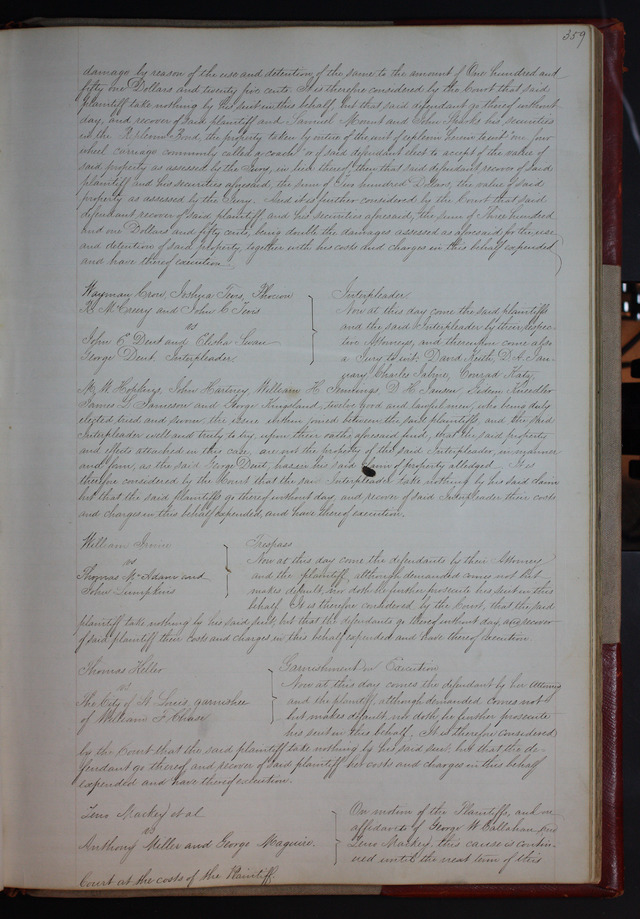 359
damage by reason of the use and detention of the same to the amount of One hundred and
fifty one Dollars and twenty five cents. It is therefore considered by the Court that said
plaintiff take nothing by his suit in this behalf, but that said defendant go thereof without
day, and recover of said plaintiff and Samuel Mount and John his securities
in the Replevin Bond, the property taken by virtue of the writ of replevin herein to wit "one four
wheel carriage commonly called a coach" or if said defendant elect to accept of the value of
said property as assessed by the Jury, in lieu thereof, then that said defendant recover of said
plaintiff and his securities aforesaid, the sum of Two hundred Dollars, the value of said
property as assessed by the Jury. And it is further considered by the Court that said
defendant recover of said plaintiff and his securities aforesaid, the sum of Three hundred
and two Dollars and fifty cents, being double the damages assessed as aforesaid for the use
and detention of said property, together with his costs and charges in this behalf expended
and have thereof execution.
Wayman Crow, Joshua Tevis, Phocion
R. McCreery and John C Tevis
vs
John C Dent and Elisha Swan
George Dent, Interpleader
Interpleader
Now at this day come the said plaintiffs
and the said Interpleader by their respec-
tive Attorneys, and thereupon come also
a Jury to wit; David Keith, D. A. Jan-
uary, Charles Conrad
M. W. Hopkins, John Hartney, William H Jennings, D. H. Jansen,
James L Jamieson and George Kingsland, twelve good and lawful men, who being duly
elected tried and sworn, the issue herein joined between the said plaintiffs, and the said
Interpleader well and truly to try, upon their oaths aforesaid find, that the said property
and effects attached in this case, are not the property of the said Interpleader, in manner
and form, as the said George Dent, has in his said claim of property alledged. It is
therefore considered by the Court that the said Interpleader take nothing by his said claim
but that the said plaintiffs go thereof without day, and recover of said Interpleader their costs
and charges in this behalf expended, and have thereof execution.
William Irwin
vs
Thomas McAdam and
John Simpkins
Trespass
Now at this day come the defendants by their Attorney
and the plaintiff, although demanded comes not but
makes default, nor doth he further prosecute his suit in this
behalf. It is therefore considered, by the Court, that the said
plaintiff take nothing by his said suit, but that the defendants go thereof without day, and recover
of said plaintiff their costs and charges in this behalf expended and have thereof execution
Thomas Keller
vs
The City of St Louis, garnishee
of William F Chase
Garnishment on Execution
Now at this day comes the defendant by her Attorney
and the plaintiff, although demanded comes not
but makes default, nor doth he further prosecute
his suit in this behalf. It is therefore considered
by the Court that the said plaintiff take nothing by his said suit, but that the de-
fendant go thereof and recover of said plaintiff her costs and charges in this behalf
expended and have thereof execution.
Zeno Mackey et al
vs
Anthony Miller and George Maguire.
On motion of the Plaintiffs, and on
affidavits of George W Callahan and
Zeno Mackey, this cause is contin-
ued until the next term of this
Court at the costs of the Plaintiff.